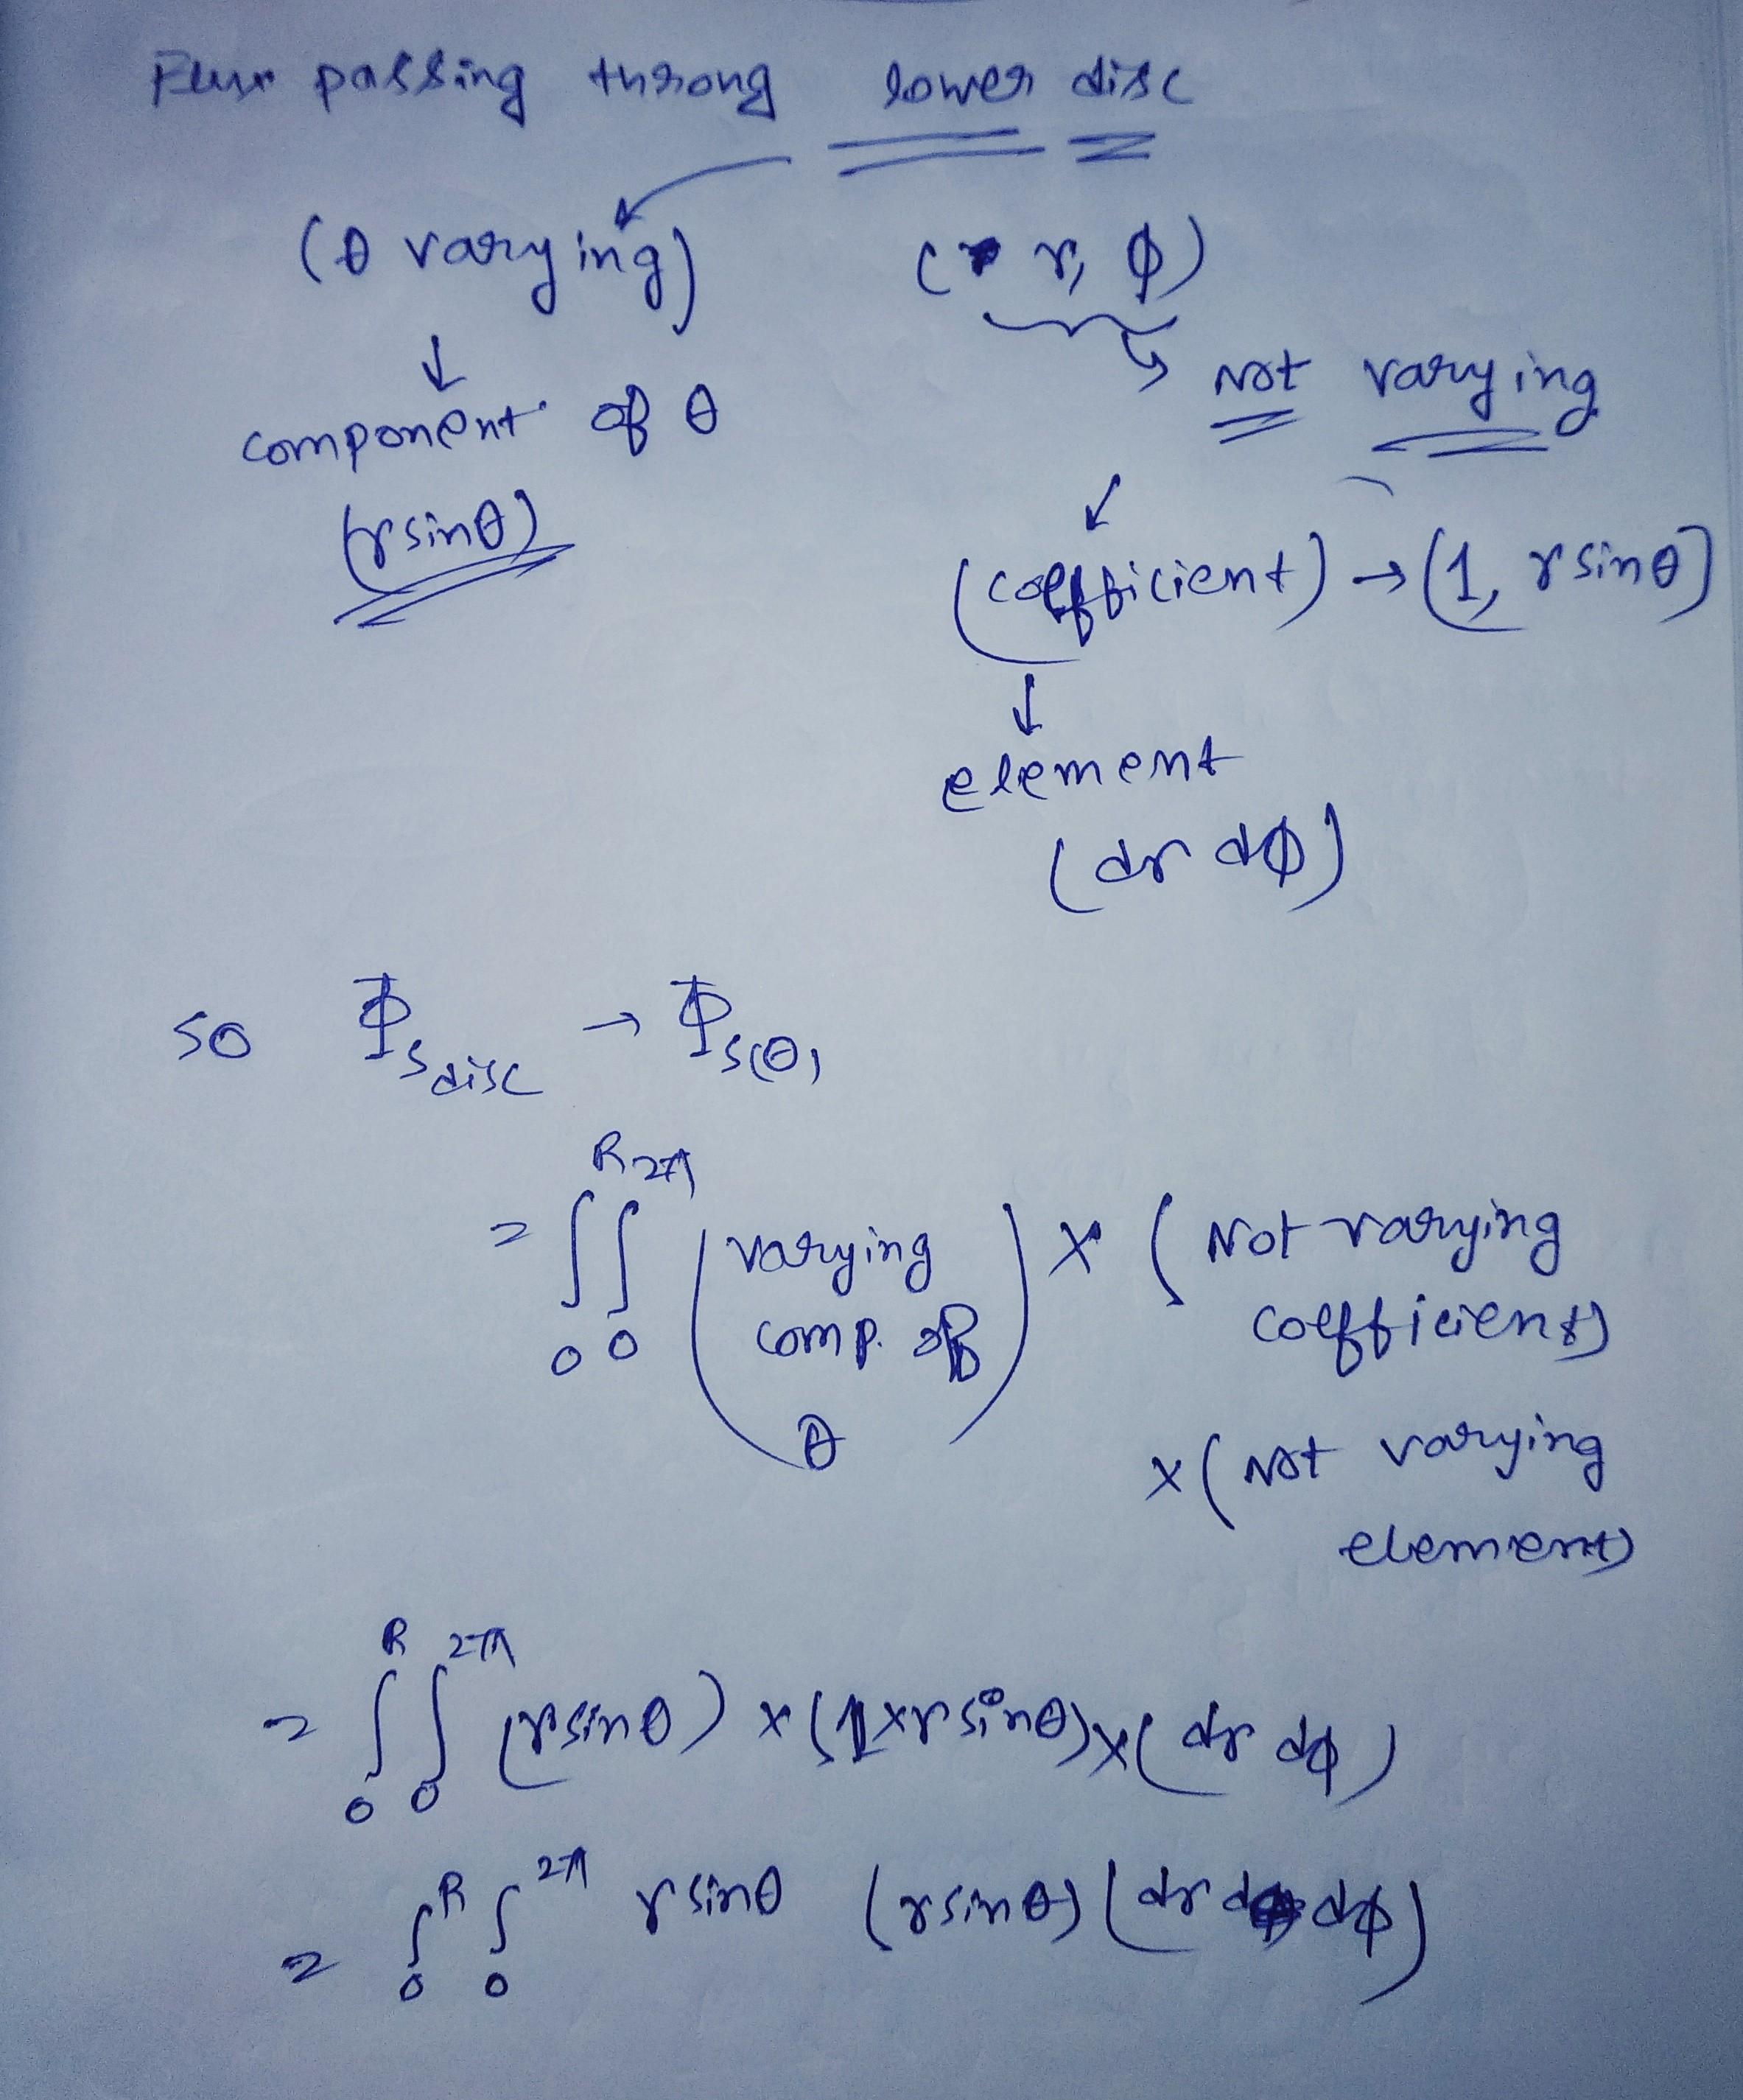 Flux passing throng lower disc
(θ varying) (r, φ)
↓
component of θ
(rsinθ)
↳ Not varying
↙
(coefficient) → (1, rsinθ)
↓
element
(dr dφ)
so Φ_{S disc} → Φ_{S(θ)}
= ∫_0^R ∫_0^{2π} (varying comp. of θ) × (Not varying coefficient)
× (Not varying element)
= ∫_0^R ∫_0^{2π} (rsinθ) × (1×rsinθ) × (dr dφ)
= ∫_0^R ∫_0^{2π} rsinθ (rsinθ) (dr dφ)